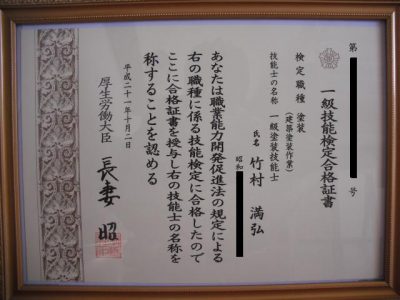 第
号
一級技能検定合格証書
検定職種 塗装
(建築塗装作業)
技能士の名称 一級塗装技能士
氏名 竹村 満弘
昭和
あなたは職業能力開発促進法の規定による
右の職種に係る技能検定に合格したので
ここに合格証書を授与し右の技能士の名称を
称することを認める
平成二十一年十月二日
厚生労働大臣 長妻 昭